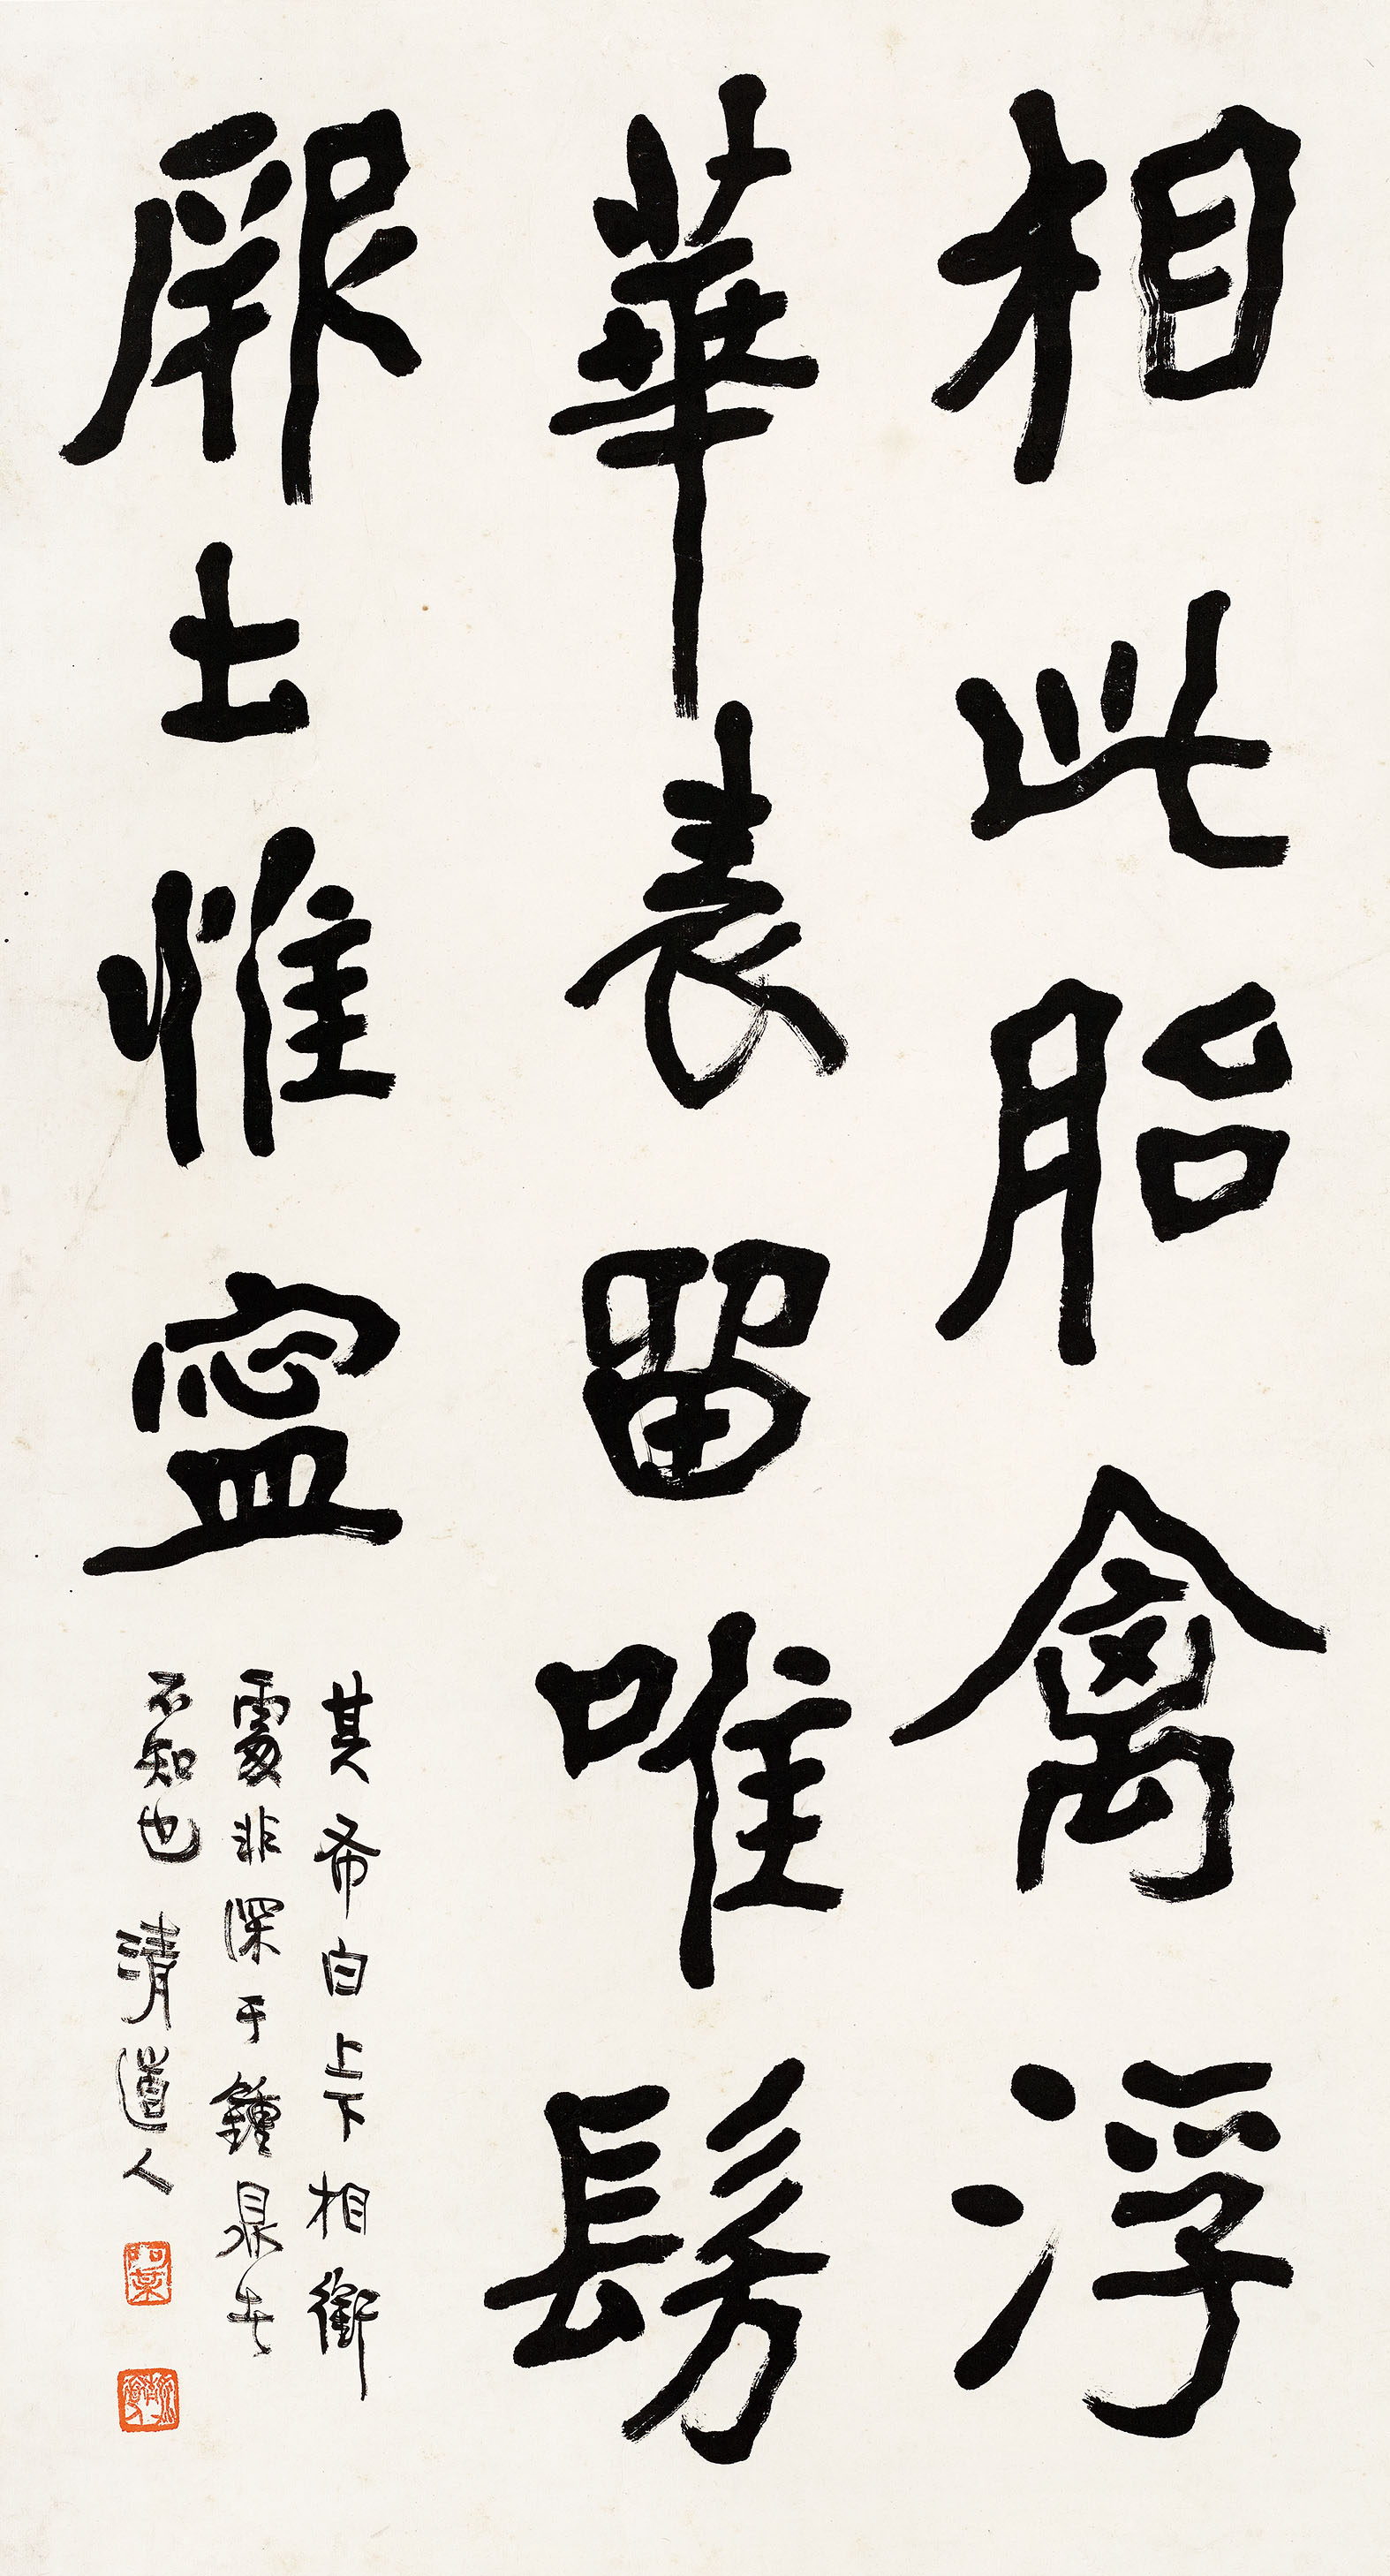 相此胎禽浮
華表留唯髣
厥土惟寧
其希白上下相銜
處非深于鐘鼎者
不知也 清道人